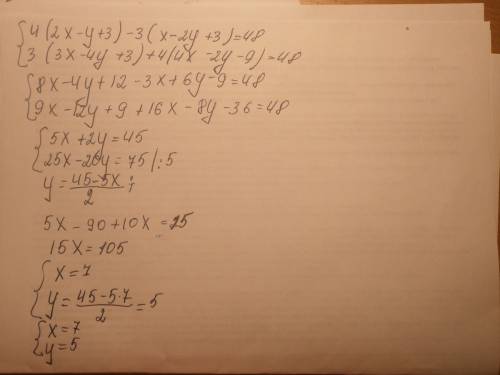 {4(2x-y+3)-3(x-2y+3)=48
3(3x-4y+3)+4(4x-2y-9)=48
{8x-4y+12-3x+6y-9=48
9x-12y+9+16x-8y-36=48
{5x+2y=45
25x-20y=75/:5
y=45-5x/2;
5x-90+10x=15
15x=105
{x=7
y=45-5·7/2=5
{x=7
y=5